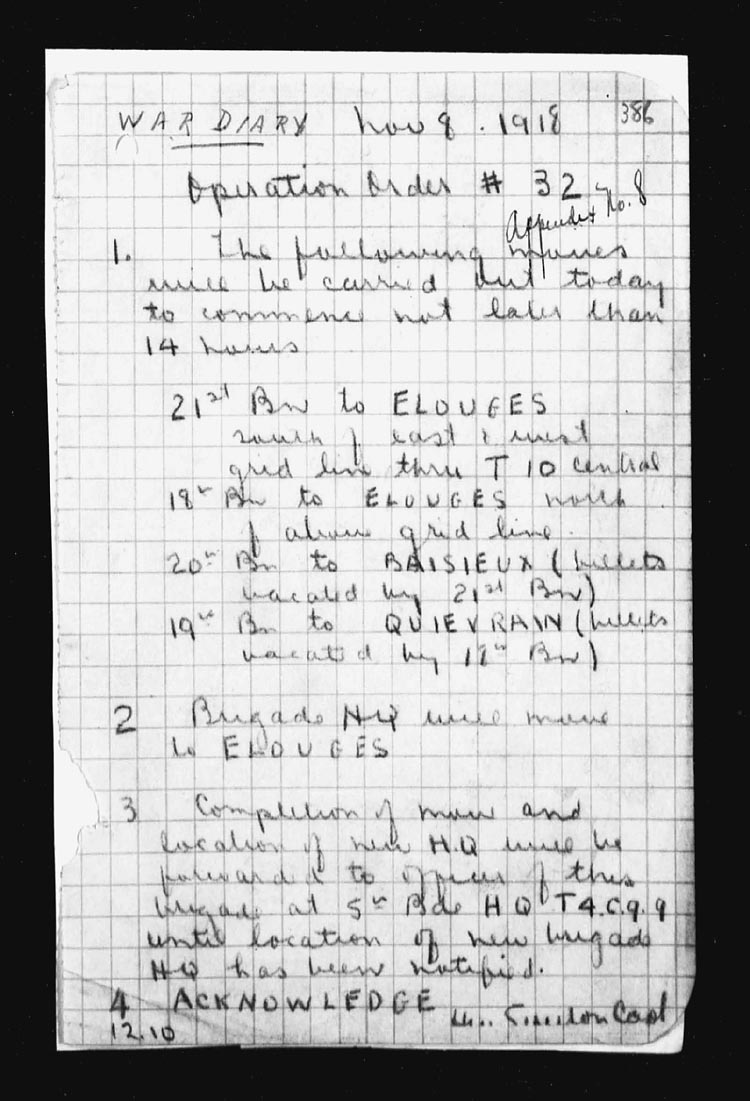 WAR DIARY Nov 8. 1918 386
Operation Order # 32
Appendix No. 8
1. The following moves
will be carried out today
to commence not later than
14 hours
21st Bn to ELOUGES
south of east & west
grid line thru T 10 central
18th Bn to ELOUGES north
of above grid line.
20th Bn to BAISIEUX (billets
vacated by 21st Bn)
19th Bn to QUIEVRAIN (billets
vacated by 18th Bn)
2 Brigade HQ will move
to ELOUGES
3 Completion of move and
location of new HQ will be
forwarded to officer of this
brigade at 5th Bde HQ T4.c.9.9
until location of new brigade
HQ has been notified.
4 ACKNOWLEDGE
12.10 Capt